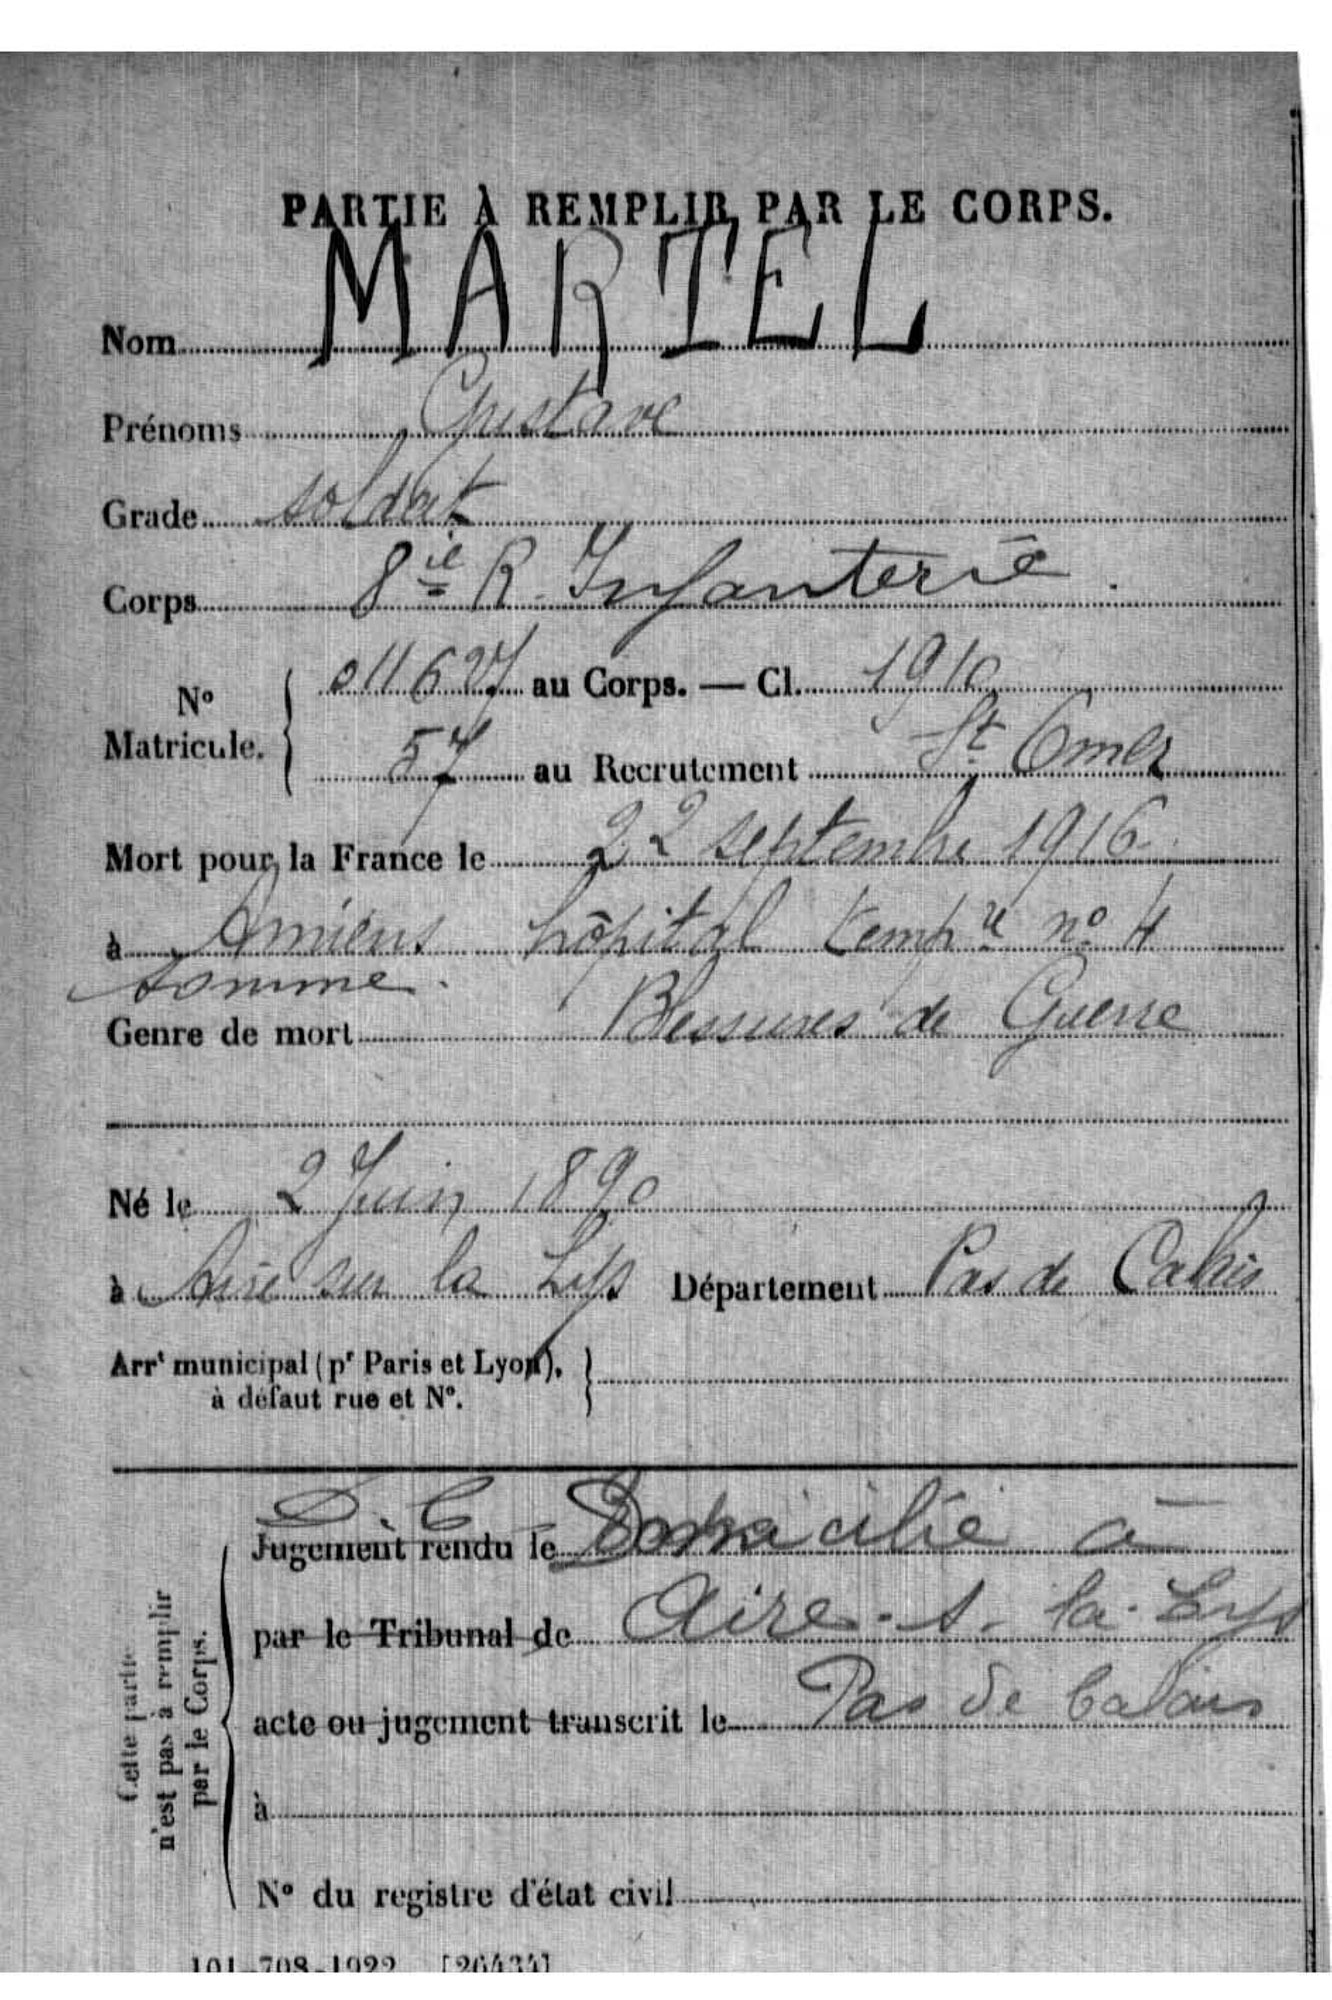 PARTIE À REMPLIR PAR LE CORPS.
Nom MARTEL
Prénoms Gustave
Grade soldat
Corps 8ie R. Infanterie
N° Matricule. 011627 au Corps. — Cl. 1910
57 au Recrutement St Omer
Mort pour la France le 22 septembre 1916
à Amiens hôpital tempre no 4
Somme.
Genre de mort Blessures de Guerre
Né le 2 Juin 1890
à Aire sur la Lys Département Pas de Calais
Arrt municipal (pr Paris et Lyon),
à défaut rue et N°.
Cette partie
n'est pas à remplir
par le Corps.
D. C
Jugement rendu le Domicilié à
par le Tribunal de Aire-s-la-Lys
acte ou jugement transcrit le Pas de Calais
à
N° du registre d'état civil
101-708-1922. [26434]